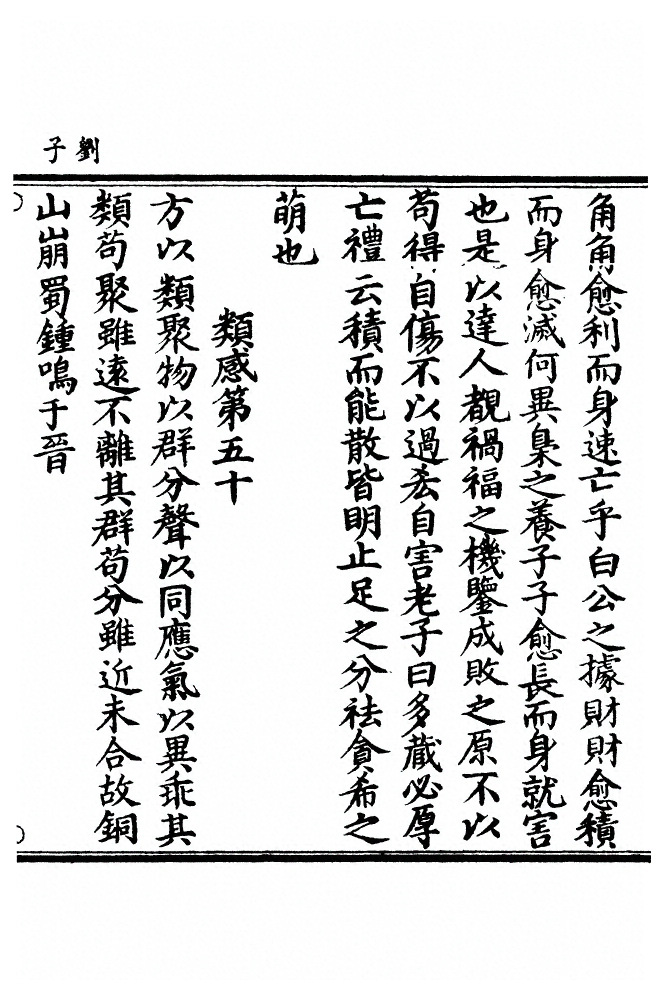 劉子
角角愈利而身速亡乎白公之據財財愈積
而身愈滅何異梟之養子子愈長而身就害
也是以達人覩禍福之機鑒成敗之原不以
苟得自傷不以過丟自害老子曰多藏必厚
亡禮云積而能散皆明止足之分祛貪希之
萌也
類感第五十
方以類聚物以群分聲以同應氣以異乖其
類苟聚雖遠不離其群苟分雖近未合故銅
山崩蜀鍾鳴于晉